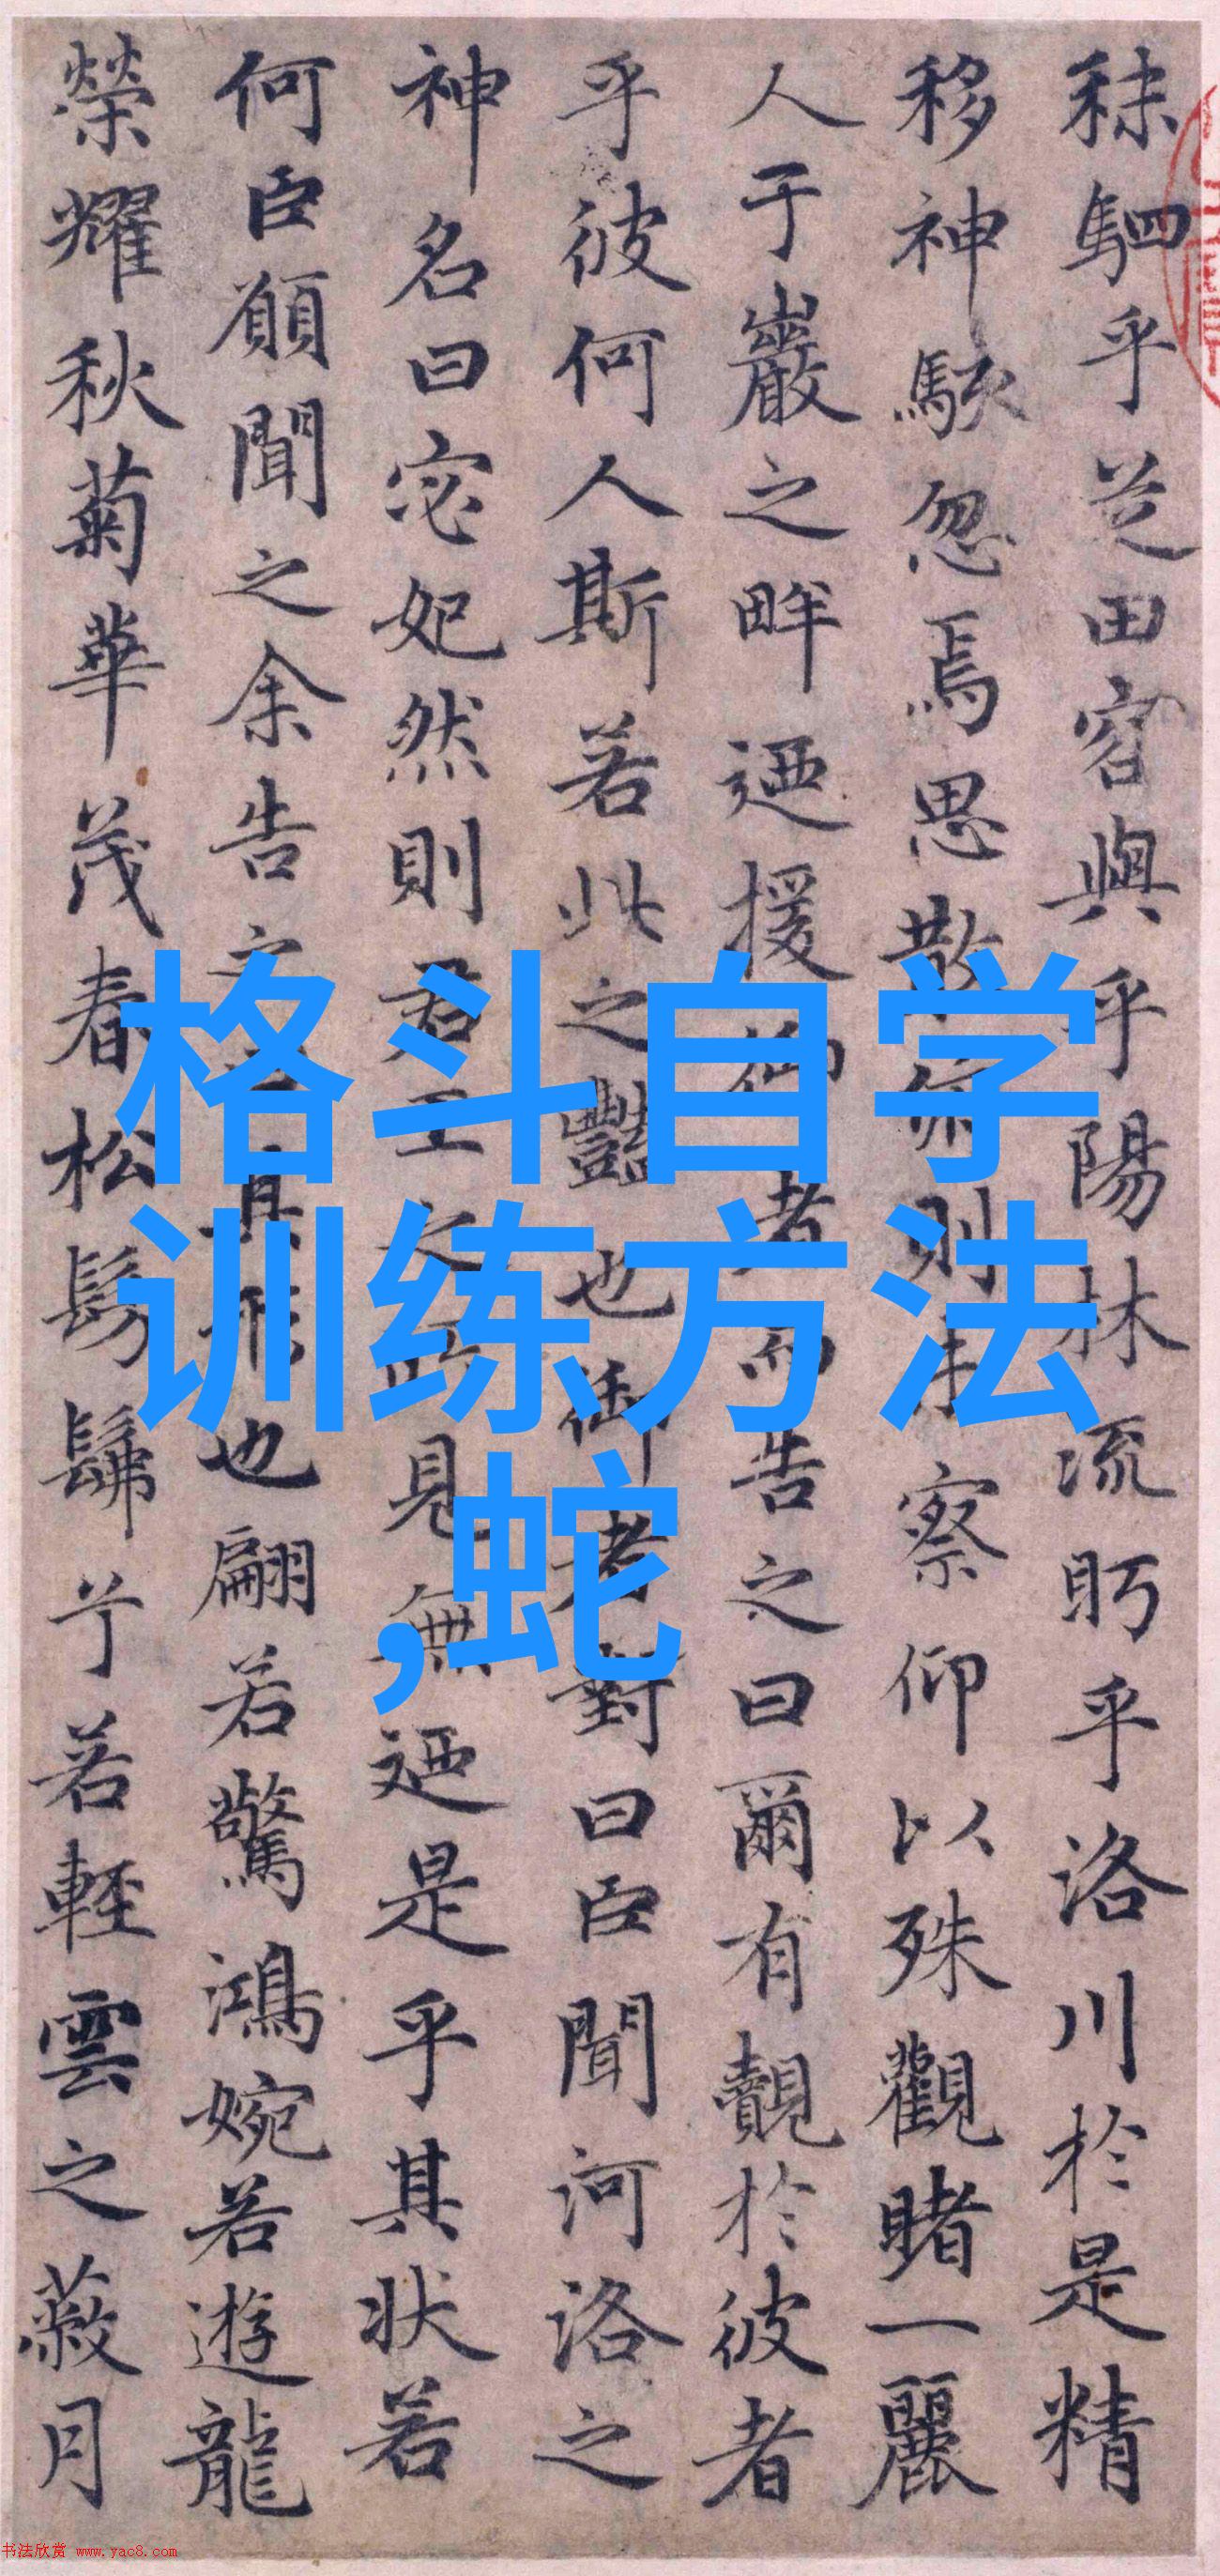 秣駟乎芝田容與乎陽林流眄乎洛川於是精
移神駭忽焉思散俯則未察仰以殊觀睹一麗
人于巖之畔迺援御者而告之曰爾有覿於彼者
乎彼何人斯若此之豔也御者對曰臣聞河洛之
神名曰宓妃然則君王之所見無迺是乎其狀若
何臣願聞之余告之曰其形也翩若驚鴻婉若遊龍
榮耀秋菊華茂春松髣髴兮若輕雲之蔽月
格斗自学
训练方法
,蛇
书法欣赏 www.yac8.com